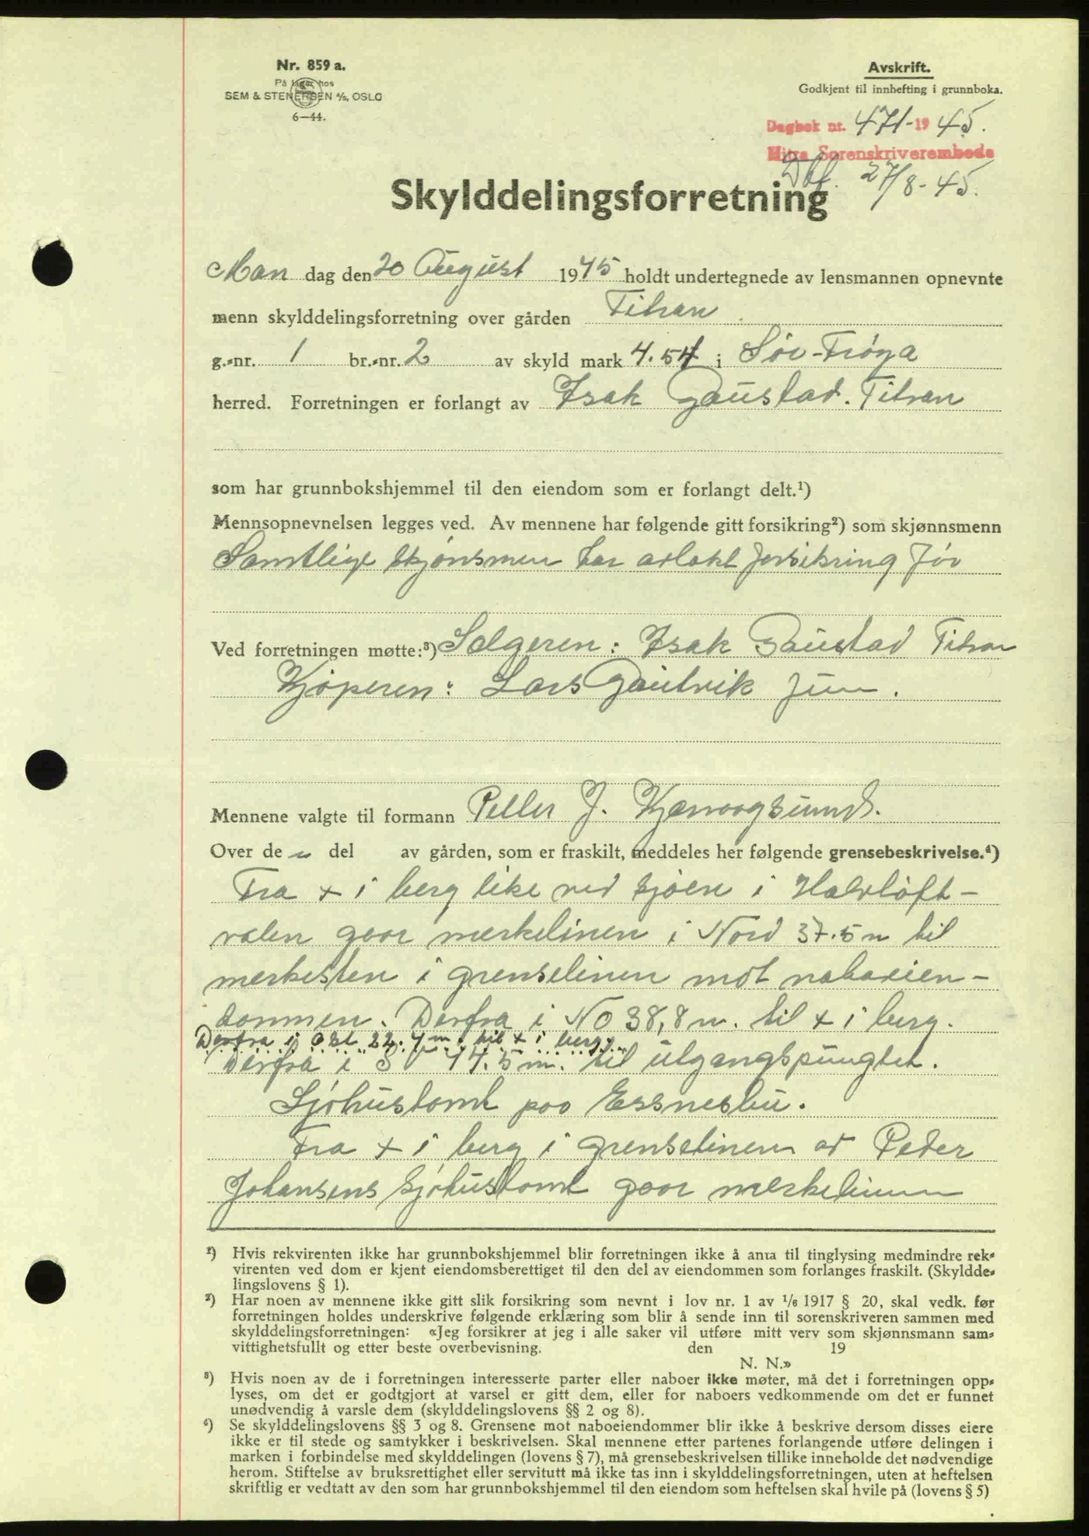 Nr. 859 a.
På lager hos
SEM & STENERSEN A/S, OSLO
6—44.
Avskrift.
Godkjent til innhefting i grunnboka.
Dagbok nr. 471-1945.
Hitra Sorenskriverembede
Dbf. 27/8-45.
Skylddelingsforretning
Man dag den 20 August 1945 holdt undertegnede av lensmannen opnevnte
menn skylddelingsforretning over gården Titran
g.-nr. 1 br.-nr. 2 av skyld mark 4.54 i Sør-Frøya
herred. Forretningen er forlangt av Isak Gaustad. Titran
som har grunnbokshjemmel til den eiendom som er forlangt delt.¹)
Mennsopnevnelsen legges ved. Av mennene har følgende gitt forsikring²) som skjønnsmenn
Samtlige skjønsmen har avlakt forsikring før
Ved forretningen møtte:³) Selgeren: Isak Gaustad Titran
Kjøperen: Lars Gautvik jun.
Mennene valgte til formann Petter J. Kjervaagsund.
Over de n del av gården, som er fraskilt, meddeles her følgende grensebeskrivelse.⁴)
Fra + i berg like ved sjøen i Halvløft-
valen gaar merkelinen i Nord 37.5 m til
merkesten i grenselinen mot naboeien-
dommen. Derfra i NO 38,8 m. til + i berg.
Derfra i Øst 22.4 m. til + i berg.
Derfra i S 44.5 m. til utgangspungtet.
Sjøhustomt paa Essnesbu.
Fra + i berg i grenselinen av Peder
Johansens sjøhustomt gaar merkelinen
¹) Hvis rekvirenten ikke har grunnbokshjemmel blir forretningen ikke å anta til tinglysing medmindre rek-
virenten ved dom er kjent eiendomsberettiget til den del av eiendommen som forlanges fraskilt. (Skyldde-
lingslovens § 1).
²) Har noen av mennene ikke gitt slik forsikring som nevnt i lov nr. 1 av 1/6 1917 § 20, skal vedk. før
forretningen holdes underskrive følgende erklæring som blir å sende inn til sorenskriveren sammen med
skylddelingsforretningen: «Jeg forsikrer at jeg i alle saker vil utføre mitt verv som skjønnsmann sam-
vittighetsfullt og etter beste overbevisning. den 19
N. N.»
³) Hvis noen av de i forretningen interesserte parter eller naboer ikke møter, må det i forretningen opp-
lyses, om det er godtgjort at varsel er gitt dem, eller for naboers vedkommende om det er funnet
unødvendig å varsle dem (skylddelingslovens §§ 2 og 8).
⁴) Se skylddelingslovens §§ 3 og 8. Grensene mot naboeiendommer blir ikke å beskrive dersom disses eiere
ikke er til stede og samtykker i beskrivelsen. Skal mennene etter partenes forlangende utføre delingen i
marken i forbindelse med skylddelingen (lovens § 7), må grensebeskrivelsen tillike inneholde det nødvendige
herom. Stiftelse av bruksrettighet eller servitutt må ikke tas inn i skylddelingsforretningen, uten at heftelsen
skriftlig er vedtatt av den som har grunnbokshjemmel til den eiendom som heftelsen skal hvile på (lovens § 5)